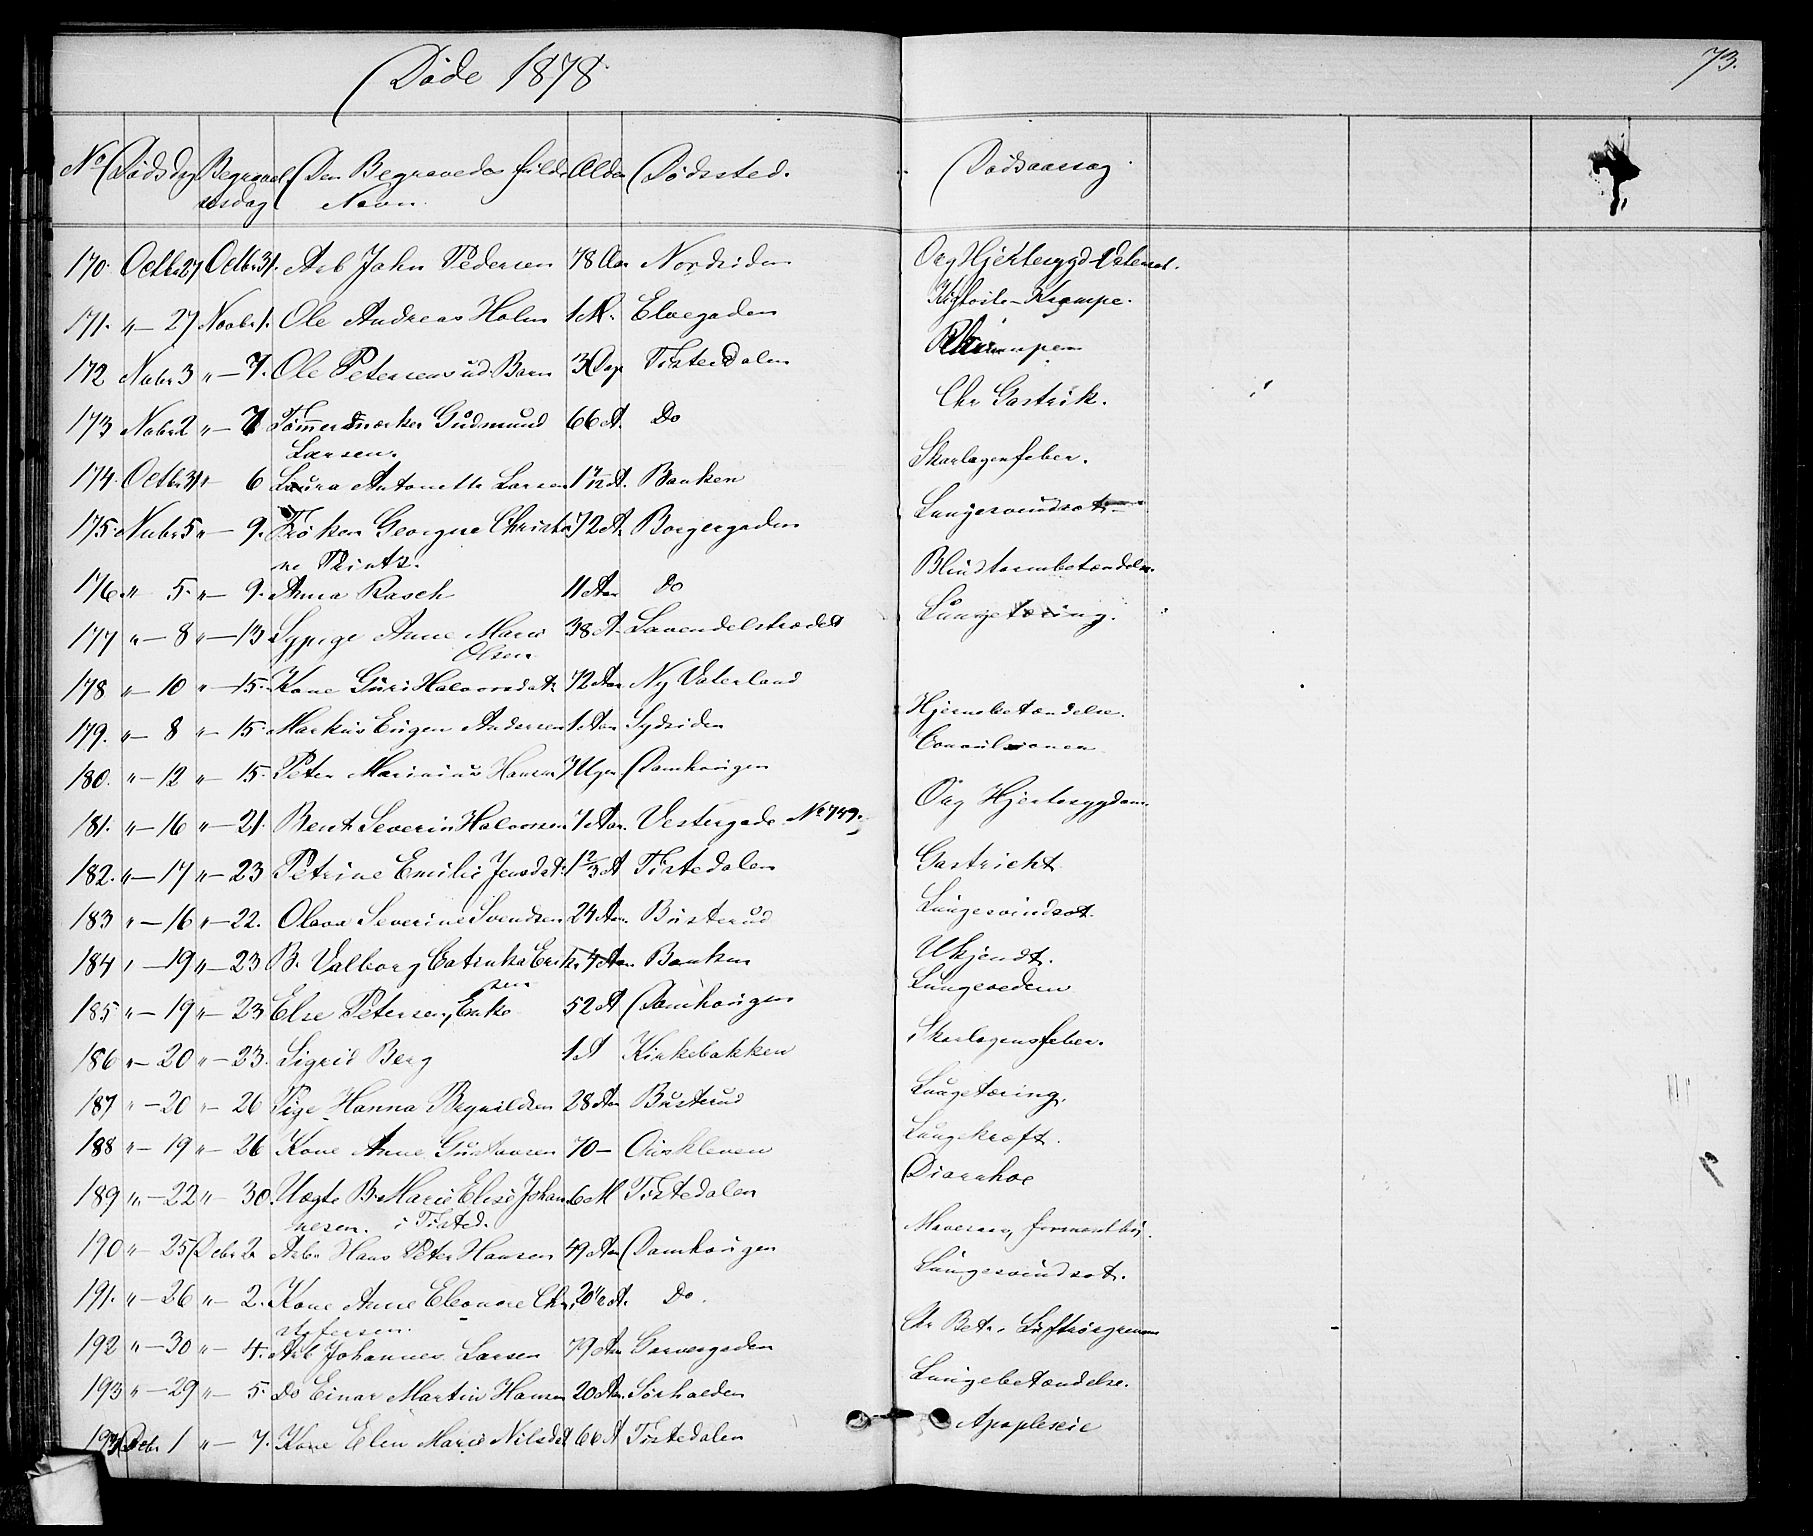 Døde 1878.
73.
No Dødsdag Begravelsesdag Den Begravedes fulde Navn. Alder Dødssted. Dødsaarsag.
170. Octbr 27 Octbr 31. Arb John Pedersen 78 Aar Nordsiden Org Hjertesygd
171. " — 27 Novbr 1. Ole Andreas Holm 1 M. Elvegaden Krampe.
172 Nvbr 3 " — 7. Ole Petersens ud. Barn 3 Dage Tistedalen
173 Nvbr 2 " — 7 Tømmermærker Gudmund 66 A. Do Chr Gastrik.
Larsen.
174. Octbr 31 " 6 Laura Antonette Larsen 1 A. Banken Skarlagensfeber.
175. Nvbr 5 " — 9. Frøken Georgine Christi 72 A. Borgergaden Lungesvindsot
ne Thintz.
176. " 5. " — 9. Anna Rasch 11 Aar Do Blindtarmbetændelse.
177 " — 8 " — 13 Sypige Anne Marie 38 A. Lavendelstrædet Lungetæring.
Olsen
178 " — 10 " — 15. Kone Guri Halvorsdatr 72 Aar Ny Vaterland
179. " — 8 " — 15. Markus Eugen Andersen 1 Aar Sydsiden Hjernebetændelse.
180. " — 12 " — 15. Peter Marinius Hansen 7 Uger Damhaugen Convulsioner
181. " — 16 " — 21. Bernt Severin Halvorsen 7 Aar. Vestergade No 749. Org Hjertesygdom.
182. " — 17 " — 23 Petrine Emilie Jensdatr 1 2/3 A Tistedalen Gastricht.
183 " — 16 " — 22. Olava Severine Svendsen 24 Aar. Busterud Lungesvindsot.
184 " — 19 " — 23 B. Valborg Catinka Erik 4 Aar Banken Ukjendt.
sen
185 " — 19 " — 23 Else Petersen, Enke 52 A Damhaugen Lungeoedem
186 " — 20 " — 23. Sigrid Berg 1 A Kirkebakken Skarlagensfeber.
187 " — 20 " — 26 Pige Hanna Brynildsen 28 Aar Busterud Lungetæring.
188 " — 19 " — 26 Kone Anne Gustavsen 70 — Ouskleven Lungekræft.
189 " — 22 " — 30. Uægte B. Marie Elise Johan 6 M Tistedalen Diarrhoe
nesen. i Tisted.
190 " — 25 Decbr 2 Arbr Hans Peter Hansen 49 Aar Damhaugen Mavesaar,
191. " — 26 " — 2. Kone Anne Eleonore Chri 20 1/2 A. Do. Lungesvindsot.
stofersen.
192 " — 30 " — 4. Arb Johannes Larsen 79 Aar Garvergaden Chr Betr. Luftrørgrenene
193 " — 29 " — 5. Do Einar Martin Hansen 20 Aar. Sørhalden Lungebetændelse.
194 Decbr 1 " — 7. Kone Elen Marie Nilsdatr 66 A Tistedalen Apoplexie